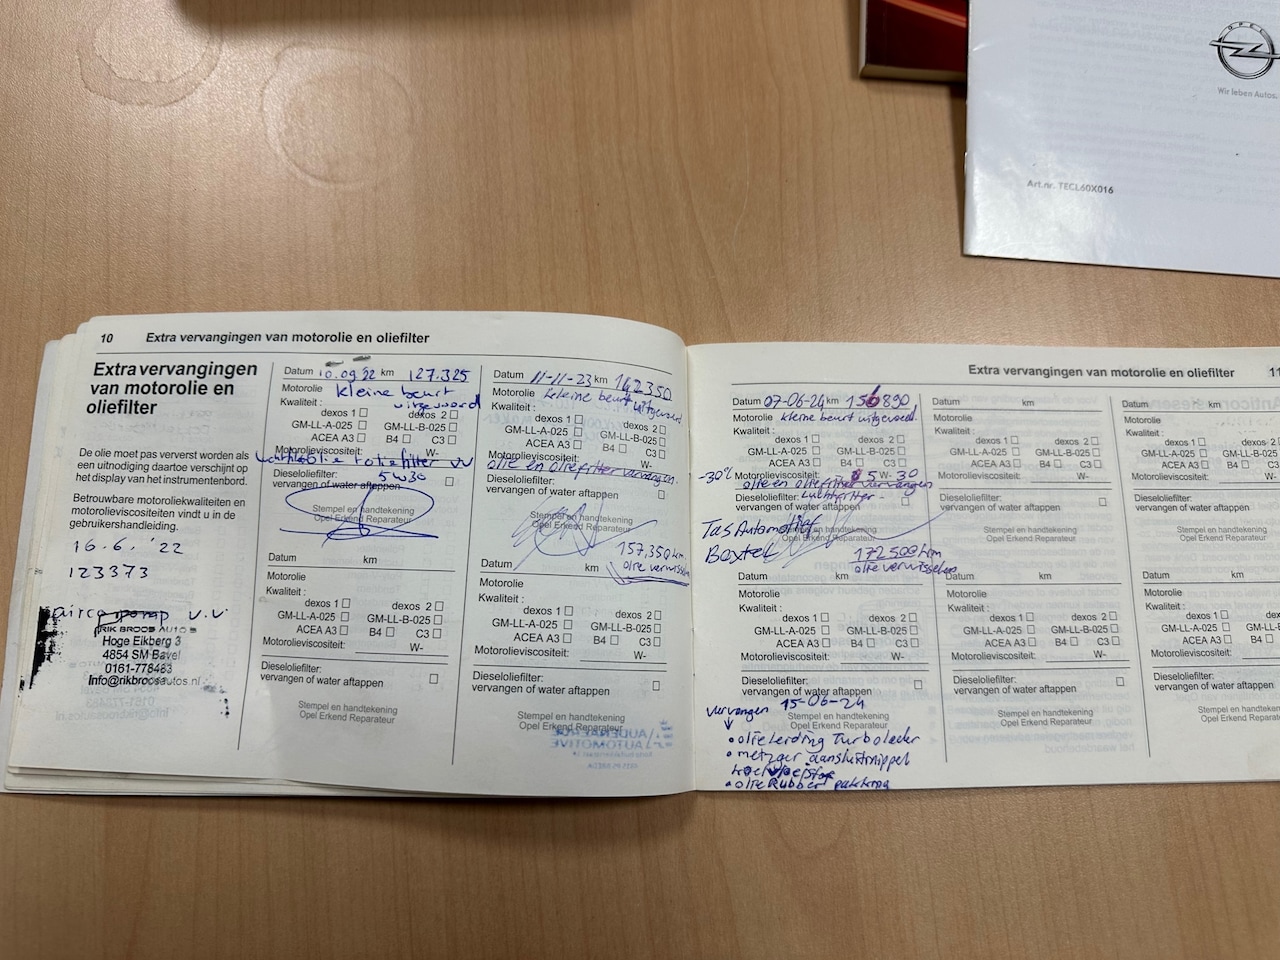 OPEL
Wir leben Autos.
Art.nr. TECL60X016
10 Extra vervangingen van motorolie en oliefilter
Extra vervangingen
van motorolie en
oliefilter
De olie moet pas ververst worden als
een uitnodiging daartoe verschijnt op
het display van het instrumentenbord.
Betrouwbare motoroliekwaliteiten en
motorolieviscositeiten vindt u in de
gebruikershandleiding.
16.6. '22
123373
airco pomp v.v
RIK BROOS AUTO'S
Hoge Eikberg 3
4854 SM Bavel
0161-778483
Info@rikbroosautos.nl
Datum 10.09.22 km 127.325
Motorolie kleine beurt
Kwaliteit: uitgevoerd
dexos 1 dexos 2
GM-LL-A-025 GM-LL-B-025
ACEA A3 B4 C3
Motorolieviscositeit: W-
olie + oliefilter vv
Dieseloliefilter: 5W30
vervangen of water aftappen
Stempel en handtekening
Opel Erkend Reparateur
Datum km
Motorolie
Kwaliteit:
dexos 1 dexos 2
GM-LL-A-025 GM-LL-B-025
ACEA A3 B4 C3
Motorolieviscositeit: W-
Dieseloliefilter:
vervangen of water aftappen
Stempel en handtekening
Opel Erkend Reparateur
Datum 11-11-23 km 142350
Motorolie kleine beurt uitgevoerd
Kwaliteit:
dexos 1 dexos 2
GM-LL-A-025 GM-LL-B-025
ACEA A3 B4 C3
Motorolieviscositeit: W-
olie en oliefilter vervangen.
Dieseloliefilter:
vervangen of water aftappen
Stempel en handtekening
Opel Erkend Reparateur
157,350 km
olie verwisselen
Datum km
Motorolie
Kwaliteit:
dexos 1 dexos 2
GM-LL-A-025 GM-LL-B-025
ACEA A3 B4 C3
Motorolieviscositeit: W-
Dieseloliefilter:
vervangen of water aftappen
Stempel en handtekening
Opel Erkend Reparateur
AUTOMOTIVE
Extra vervangingen van motorolie en oliefilter 11
Datum 07-06-24 km 156890
Motorolie kleine beurt uitgevoerd.
Kwaliteit:
dexos 1 dexos 2
GM-LL-A-025 GM-LL-B-025
ACEA A3 B4 C3
-30% Motorolieviscositeit: 5W-30
olie en oliefilter vervangen
Dieseloliefilter: Luchtfilter -
vervangen of water aftappen
Stempel en handtekening
Opel Erkend Reparateur
Tas Automotief
Boxtel
172500 km
olie verwisselen
Datum km
Motorolie
Kwaliteit:
dexos 1 dexos 2
GM-LL-A-025 GM-LL-B-025
ACEA A3 B4 C3
Motorolieviscositeit: W-
Dieseloliefilter:
vervangen of water aftappen
Stempel en handtekening
Opel Erkend Reparateur
vervangen 15-06-24
• olieleiding Turbolader
• metzger aansluitnippel
koelvloeistof
• olie Rubber pakking
Datum km
Motorolie
Kwaliteit:
dexos 1 dexos 2
GM-LL-A-025 GM-LL-B-025
ACEA A3 B4 C3
Motorolieviscositeit: W-
Dieseloliefilter:
vervangen of water aftappen
Stempel en handtekening
Opel Erkend Reparateur
Datum km
Motorolie
Kwaliteit:
dexos 1 dexos 2
GM-LL-A-025 GM-LL-B-025
ACEA A3 B4 C3
Motorolieviscositeit: W-
Dieseloliefilter:
vervangen of water aftappen
Stempel en handtekening
Opel Erkend Reparateur
Datum km
Motorolie
Kwaliteit:
dexos 1
GM-LL-A-025
ACEA A3 B4
Motorolieviscositeit: W-
Dieseloliefilter:
vervangen of water aftappen
Stempel en handtekening
Opel Erkend Reparateur
Datum km
Motorolie
Kwaliteit:
dexos 1
GM-LL-A-025
ACEA A3 B4
Motorolieviscositeit: W-
Dieseloliefilter:
vervangen of water aftappen
Stempel en handtekening
Opel Erkend Reparateur